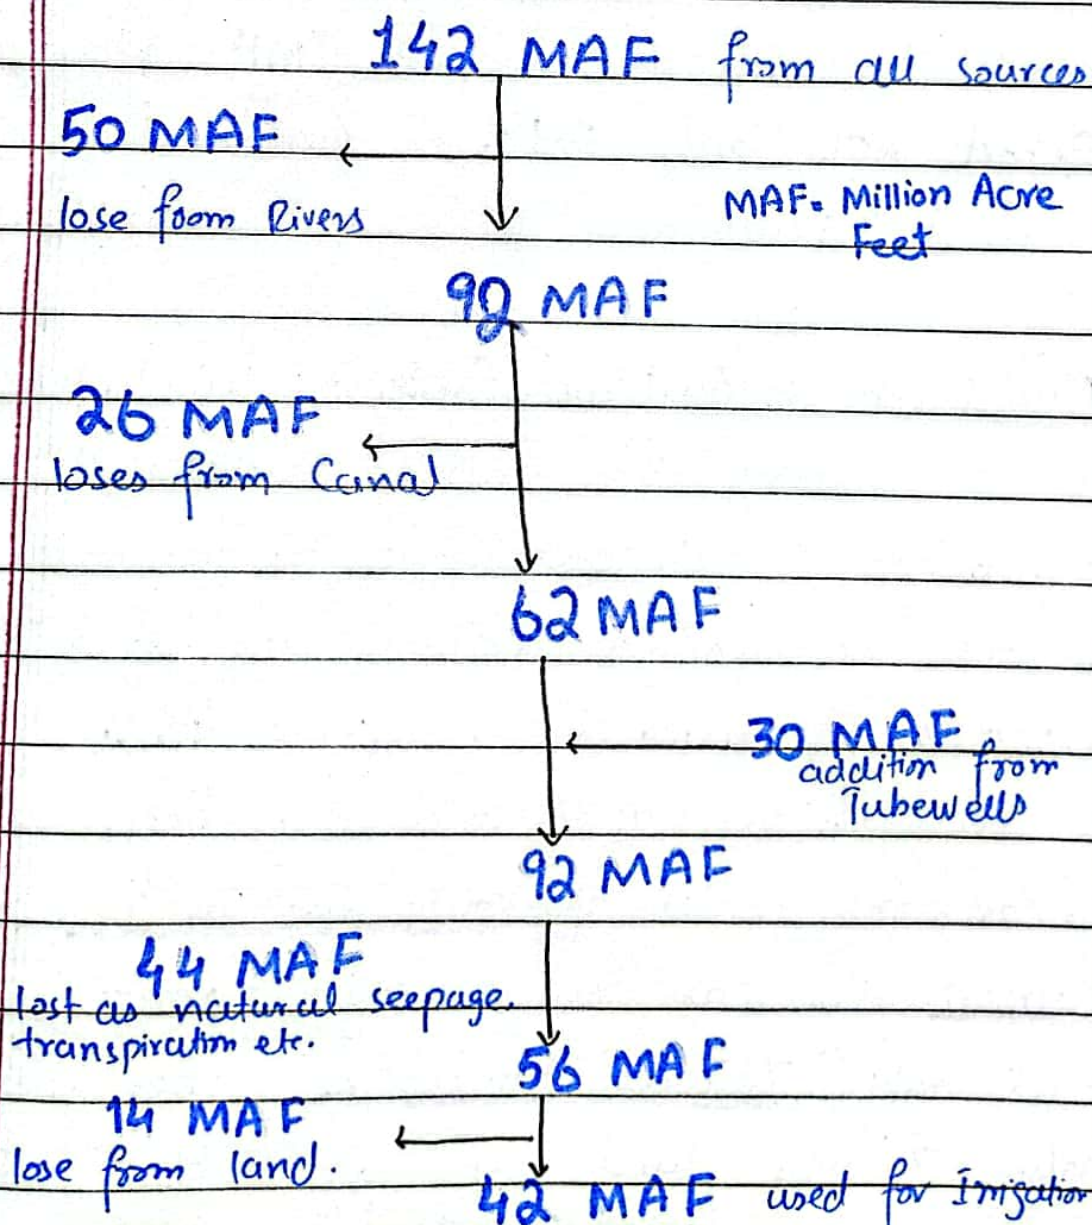 142 MAF from all sources
50 MAF
lose foom Rivers
MAF. Million Acre
Feet
92 MAF
26 MAF
loses from Canal
62 MAF
30 MAF
addition from
Tubewells
92 MAF
44 MAF
lost as natural seepage.
transpiration etc.
56 MAF
14 MAF
lose from land.
42 MAF used for Irrigation